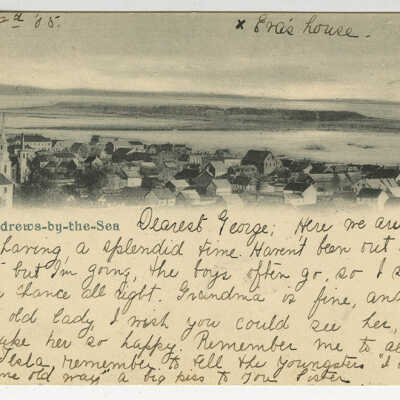 2d '05.
x Eva's house.
drews-by-the-Sea Dearest George; Here we are
having a splendid time. Haven't been out
but I'm going, the boys often go, so I s
chance all right. Grandma is fine, and
old lady, I wish you could see her,
ake her so happy. Remember me to a
remember to tell the youngsters "I
me old way" a big kiss to you Sister